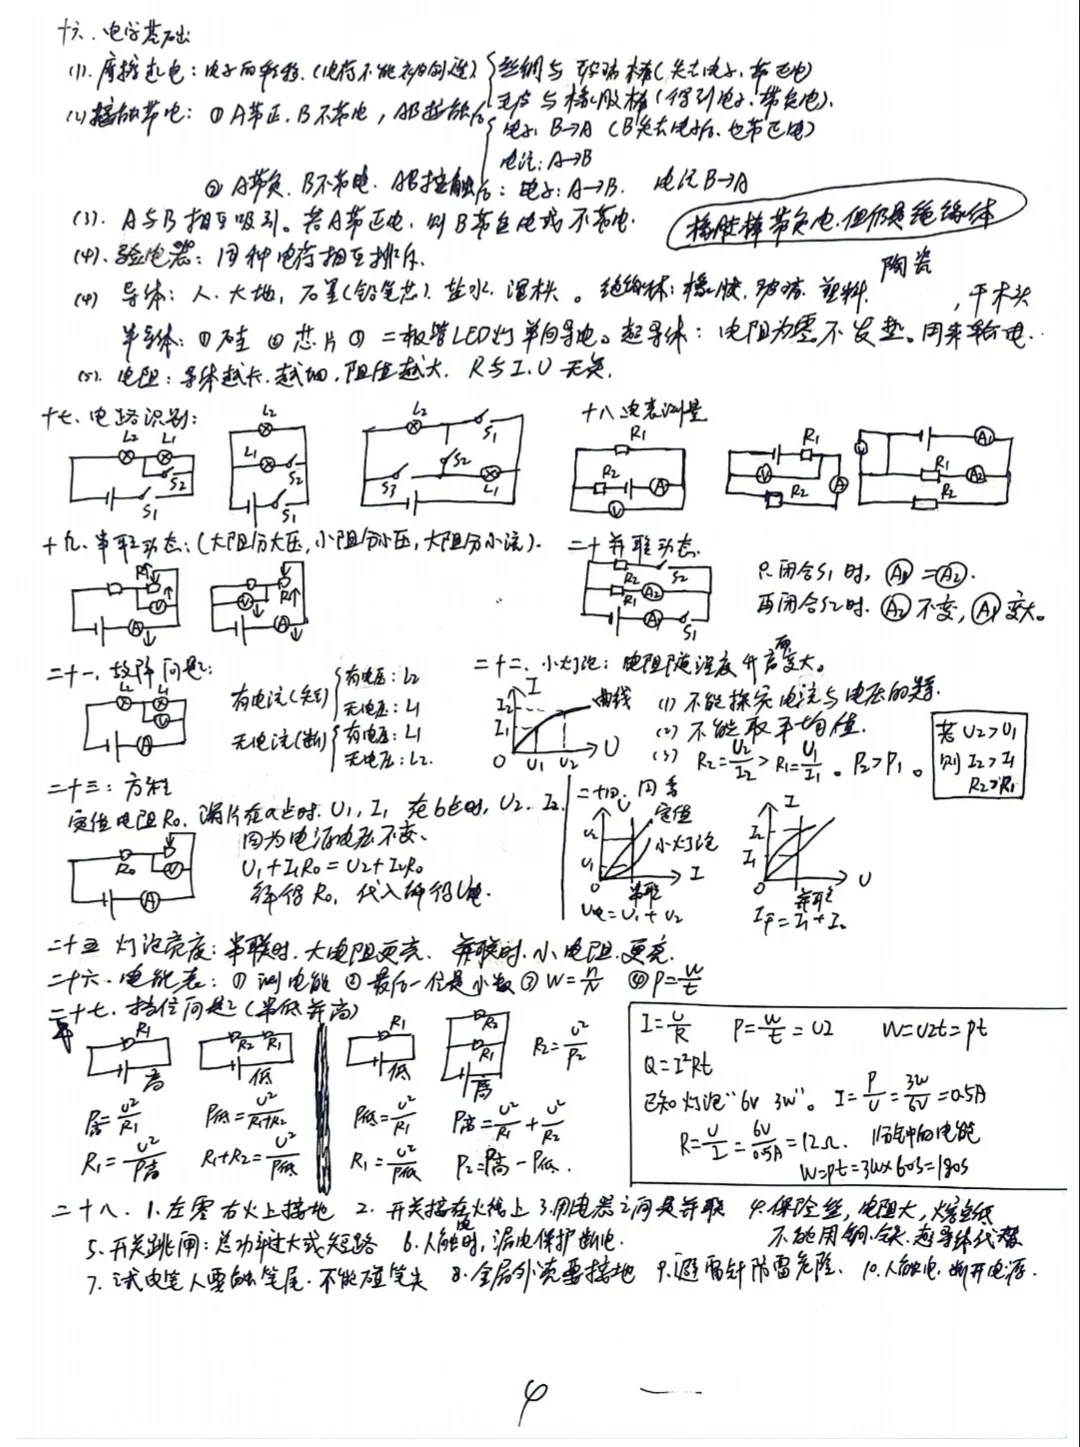 十六、电学基础
(1). 摩擦起电：电子的转移.（电荷不能被创造）{丝绸与玻璃棒（失去电子.带正电）
毛皮与橡胶棒（得到电子.带负电).
(2)接触带电：①A带正.B不带电，AB接触后{电子：B→A（B失去电子后.也带正电）
电流：A→B
②A带负.B不带电.AB接触后：电子：A→B. 电流B→A
(3). A与B相互吸引。若A带正电，则B带负电或不带电.
橡胶棒带负电.但仍是绝缘体
(4)、验电器：同种电荷相互排斥.
(4) 导体：人、大地，石墨(铅笔芯).盐水.湿木头。绝缘体：橡胶.玻璃.塑料.陶瓷，干木头
半导体：①硅 ②芯片③二极管LED灯单向导电。超导体：电阻为零.不发热。用来输电.
(5). 电阻：导体越长.越细，阻值越大. R与I.U无关.
十七、电路识别：
L2 L1 S2 S1
L2 L1 S2 S1
L2 S1 S2 S3 L1
十八电表测量
R1 R2 A V
R1 V A R2
V A1 R1 A2 R2
十九、串联动态：(大阻分大压，小阻分小压，大阻分小流).
R↑ V↑ A↓
V↓ R↑ A↓
二十并联动态.
R2 S2 R1 A2 A1 S1
只闭合S1时，A1=A2.
再闭合S2时.A2不变，A1变大。
二十一、故障问题：
L2 L1 V A
有电流(短){有电压：L2
无电压：L1
无电流(断){有电压：L1
无电压：L2.
二十二、小灯泡：电阻随温度升高而变大。
I I2 I1 曲线 O U1 U2 U
(1) 不能探究电流与电压的关系.
(2) 不能取平均值.
(3) R2=U2/I2>R1=U1/I1。P2>P1。
若U2>U1
则I2>I1
R2>R1
二十三：方程
定值电阻R0，滑片在a点时.U1，I1，在b点时，U2. I2.
R0 V A
因为电源电压不变、
U1+I1R0=U2+I2R0
解得R0，代入解得U电.
二十四、图象
U 定值 U2 小灯泡 U1 O 串联 I
U电=U1+U2
I I2 I1 O 并联 U
I干=I1+I2
二十五 灯泡亮度：串联时.大电阻更亮. 并联时.小电阻.更亮.
二十六.电能表：①测电能 ②最后一位是小数③W=n/N ④P=W/t
二十七、档位问题（串低并高）
R1 高
R2 R1 低
R1 低
R2 R1 高
R2=U²/P2
P高=U²/R1 P低=U²/R1+R2 P低=U²/R1 P高=U²/R1+U²/R2
R1=U²/P高 R1+R2=U²/P低 R1=U²/P低 P2=P高-P低.
I=U/R P=W/t=UI W=UIt=pt
Q=I²Rt
已知灯泡“6V 3W”。I=P/U=3W/6V=0.5A
R=U/I=6V/0.5A=12Ω. 1分钟的电能
W=pt=3W×60S=180J
二十八、1.左零右火上接地 2. 开关接在火线上 3.用电器之间是并联 4.保险丝，电阻大，熔点低
不能用铜.铁.超导体代替
5.开关跳闸：总功率过大或短路 6.人触电时，漏电保护断电.
7. 试电笔人要触笔尾.不能碰笔尖 8.金属外壳要接地 9.避雷针防雷危险. 10.人触电.断开电源.
4